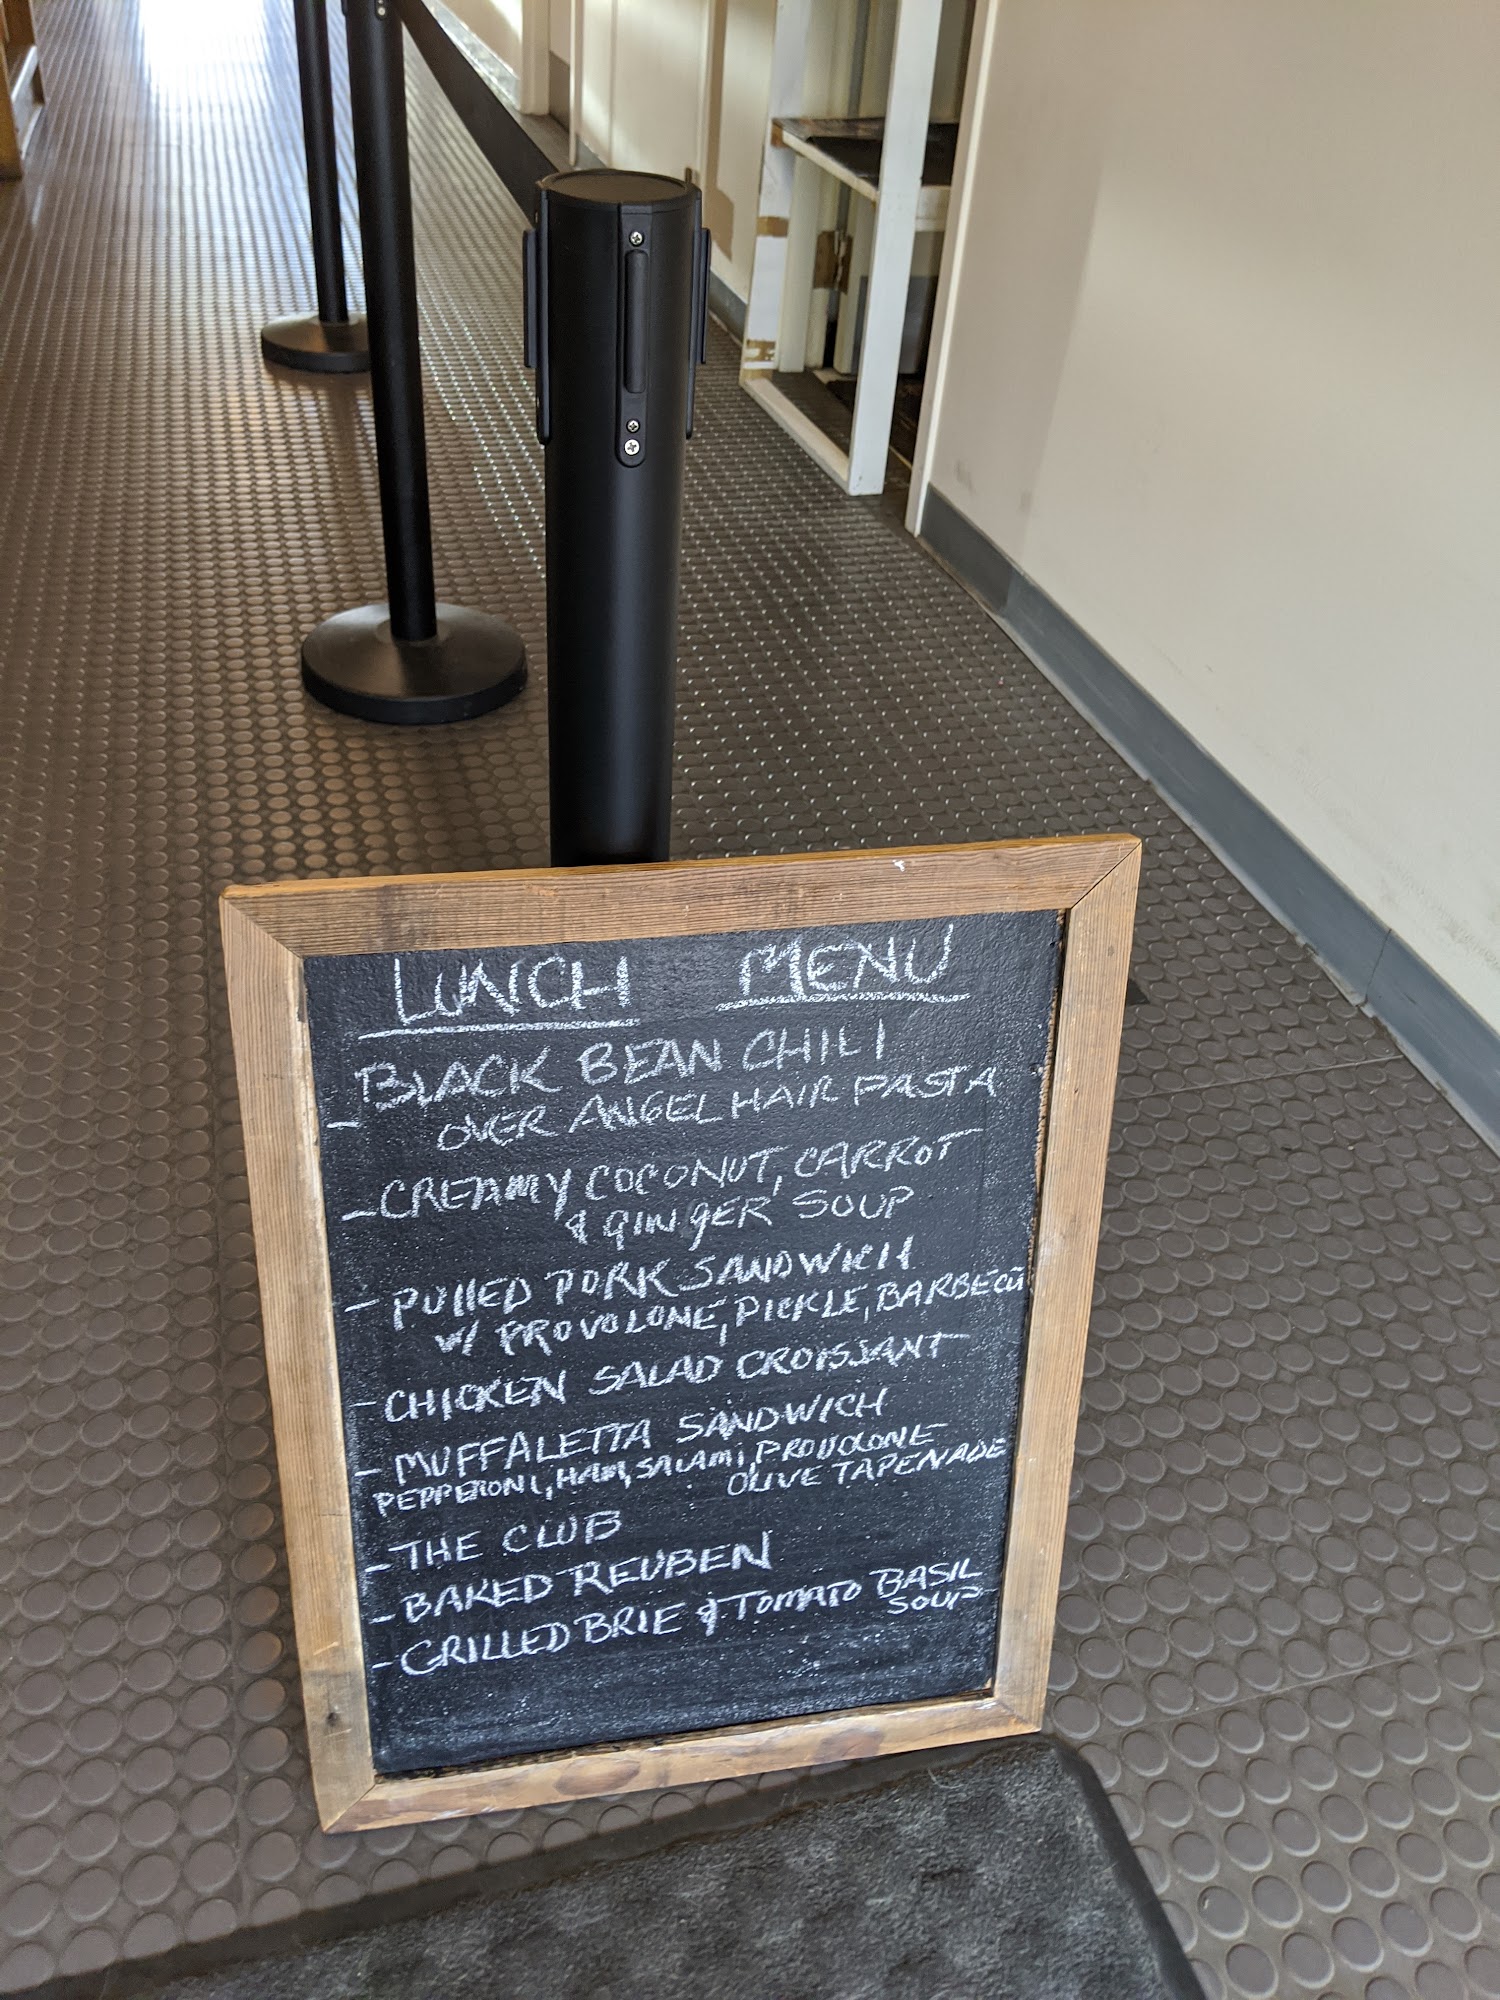 LUNCH MENU
- BLACK BEAN CHILI
OVER ANGEL HAIR PASTA
- CREAMY COCONUT, CARROT
& GINGER SOUP
- PULLED PORK SANDWICH
W/ PROVOLONE, PICKLE, BARBECU
- CHICKEN SALAD CROISSANT
- MUFFALETTA SANDWICH
PEPPERONI, HAM, SALAMI, PROVOLONE
OLIVE TAPENADE
- THE CLUB
- BAKED REUBEN
- GRILLED BRIE & TOMATO BASIL
SOUP